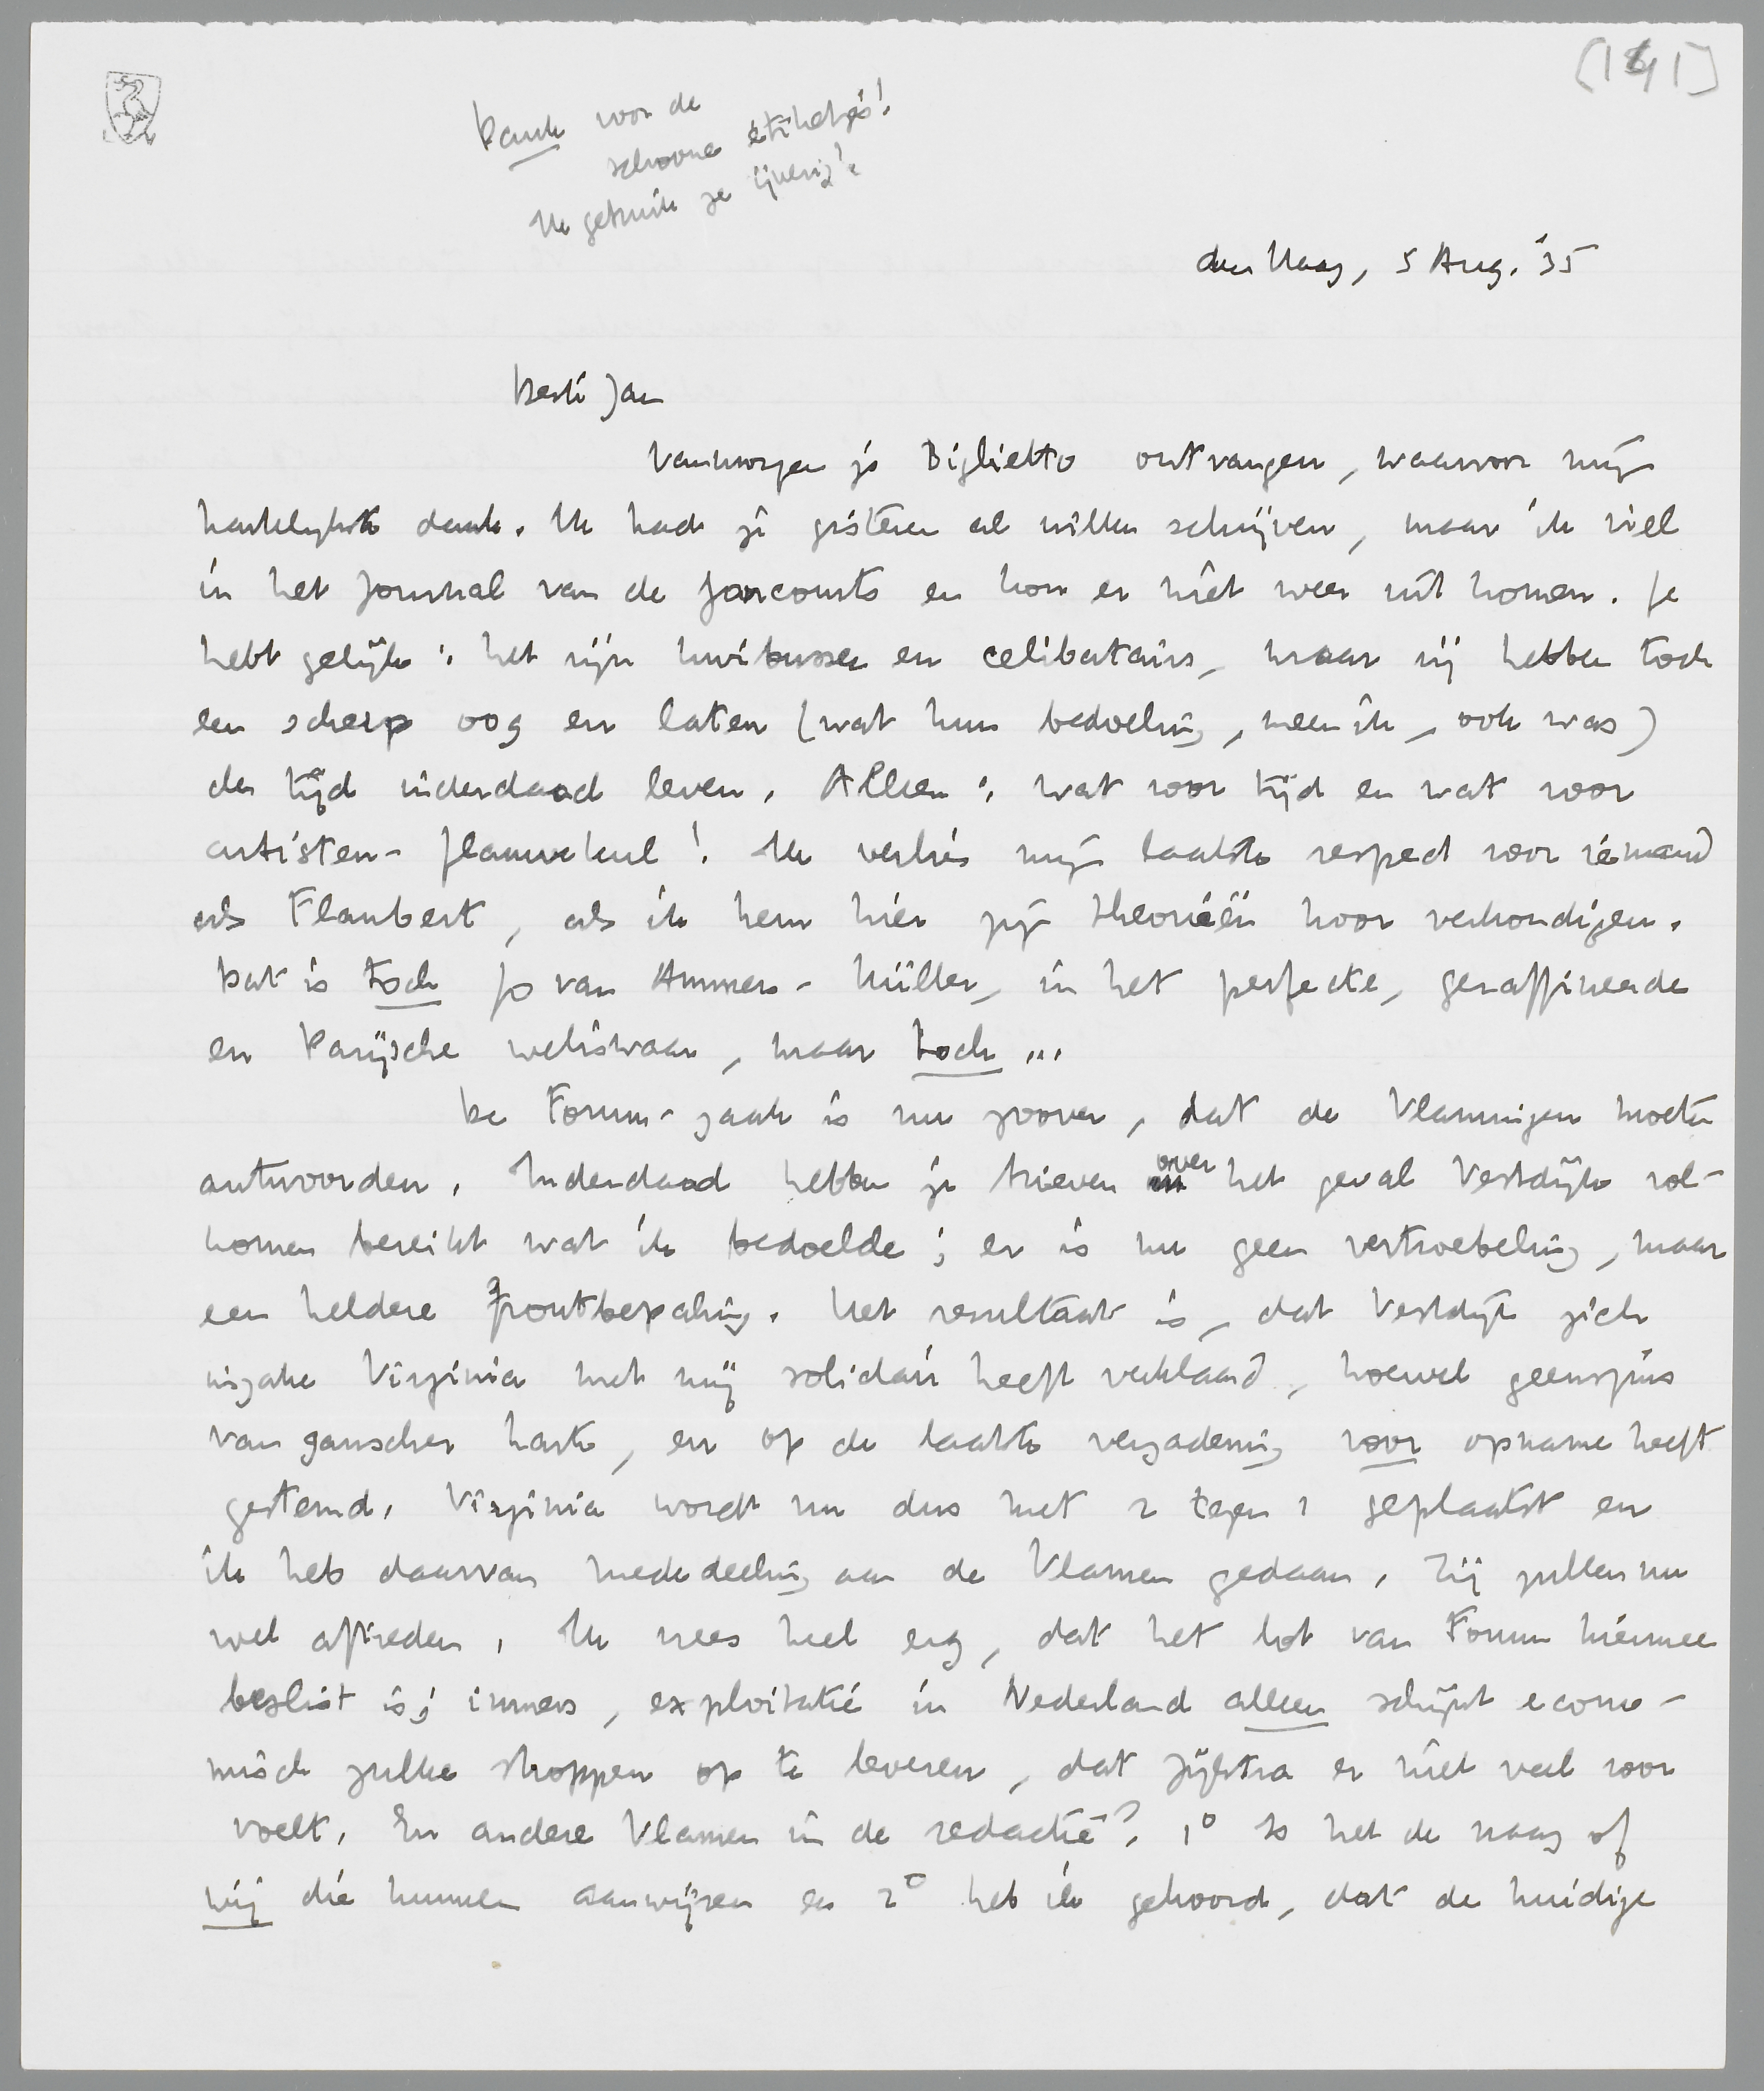 [141]
Dank voor de
schoone étiketjes!
Ik gebruik ze ijverig!
den Haag, 5 Aug. '35
Beste Jan
Vanmorgen je Biglietto ontvangen, waarvoor mijn
hartelijkste dank. Ik had je gisteren al willen schrijven, maar ik viel
in het Journal van de Goncourts en kon er niet weer uit komen. Je
hebt gelijk: het zijn kwibussen en celibatairs, maar zij hebben toch
een scherp oog en laten (wat hun bedoeling, meen ik, ook was)
den tijd inderdaad leven. Alleen: wat voor tijd en wat voor
artisten-flauwekul! Ik verlies mijn laatste respect voor iemand
als Flaubert, als ik hem hier zijn theorieën hoor verkondigen.
Dat is toch Jo van Ammers-Küller, in het perfecte, geraffineerde
en Parijsche weliswaar, maar toch ...
De Forum-zaak is nu zoover, dat de Vlamingen moeten
antwoorden. Inderdaad hebben je brieven over het geval Vestdijk vol-
komen bereikt wat ik bedoelde; er is nu geen vertroebeling, maar
een heldere frontbepaling. Het resultaat is, dat Vestdijk zich
inzake Virginia met mij solidair heeft verklaard, hoewel geenszins
van ganscher harte, en op de laatste vergadering voor opname heeft
gestemd. Virginia wordt nu dus met 2 tegen 1 geplaatst en
ik heb daarvan mededeeling aan de Vlamen gedaan. Zij zullen nu
wel aftreden. Ik vrees heel erg, dat het lot van Forum hiermee
beslist is; immers, exploitatie in Nederland alleen schijnt econo-
misch zulke stroppen op te leveren, dat Zijlstra er niet veel voor
voelt. En andere Vlamen in de redactie? 1° Is het de vraag of
wij die kunnen aanwijzen en 2° heb ik gehoord, dat de huidige